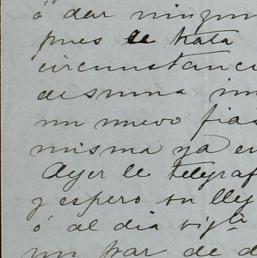 ó dar ningun
pues se trata
circunstanci
un nuevo fias
misma ya en
Ayer le telegraf
y espero su lleg
ó al dia sigte
un par de d